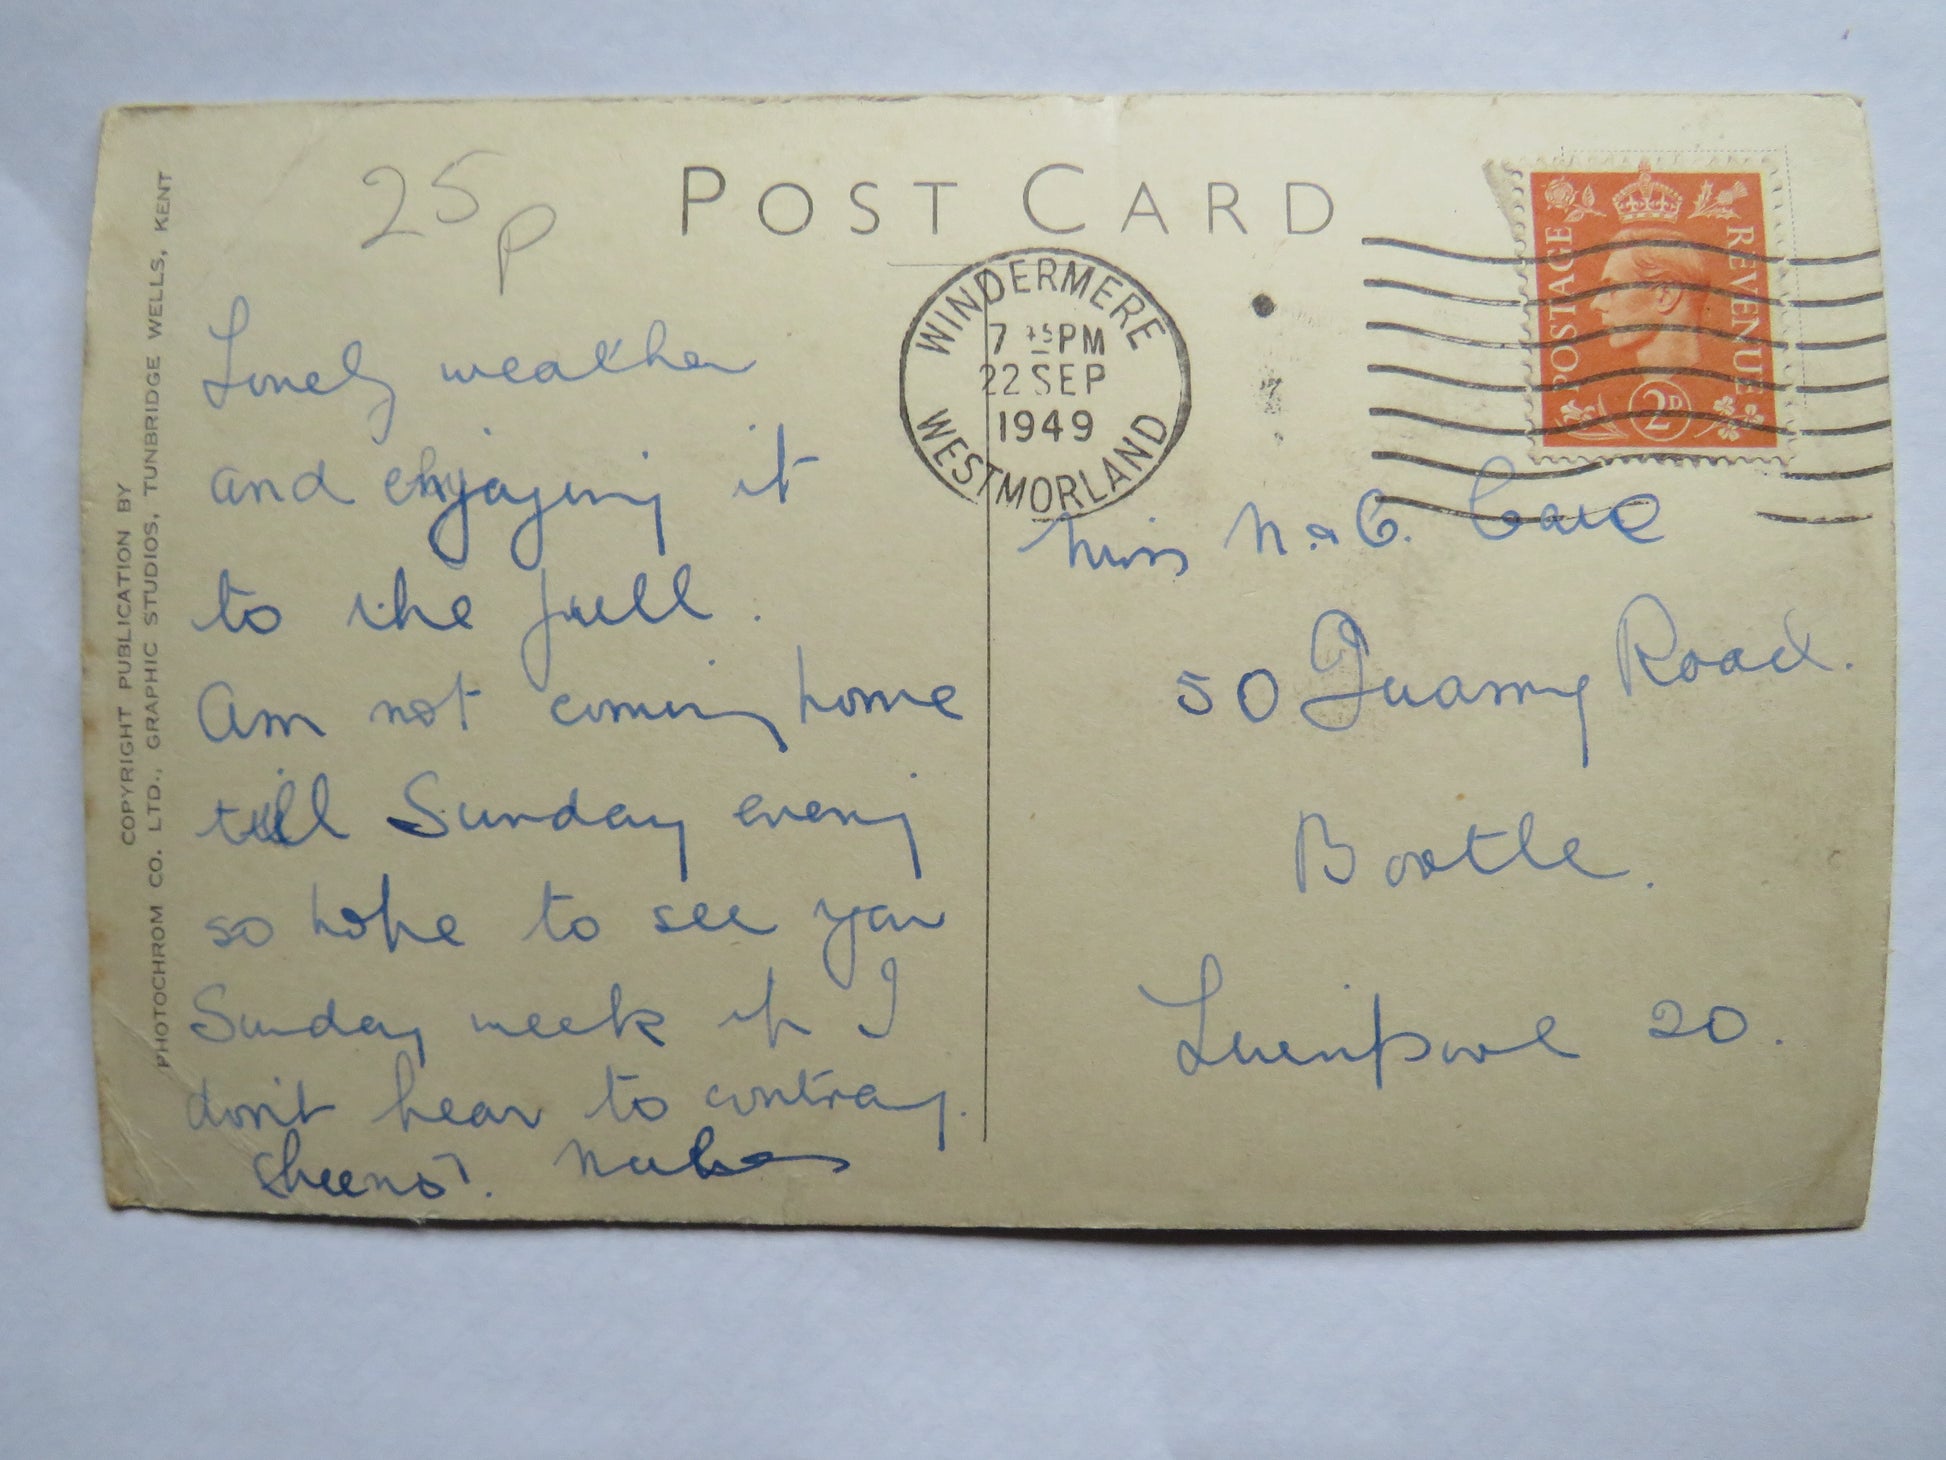 25p
POST CARD
COPYRIGHT PUBLICATION BY
PHOTOCHROM CO. LTD., GRAPHIC STUDIOS, TUNBRIDGE WELLS, KENT
WINDERMERE
7 45 PM
22 SEP
1949
WESTMORLAND
POSTAGE REVENUE
2D
Lovely weather
and enjoying it
to the full.
Am not coming home
till Sunday evening
so hope to see you
Sunday week if I
don't hear to contrary.
Cheerio!
Miss N. & C.
50 Quarry Road.
Bootle.
Liverpool 20.